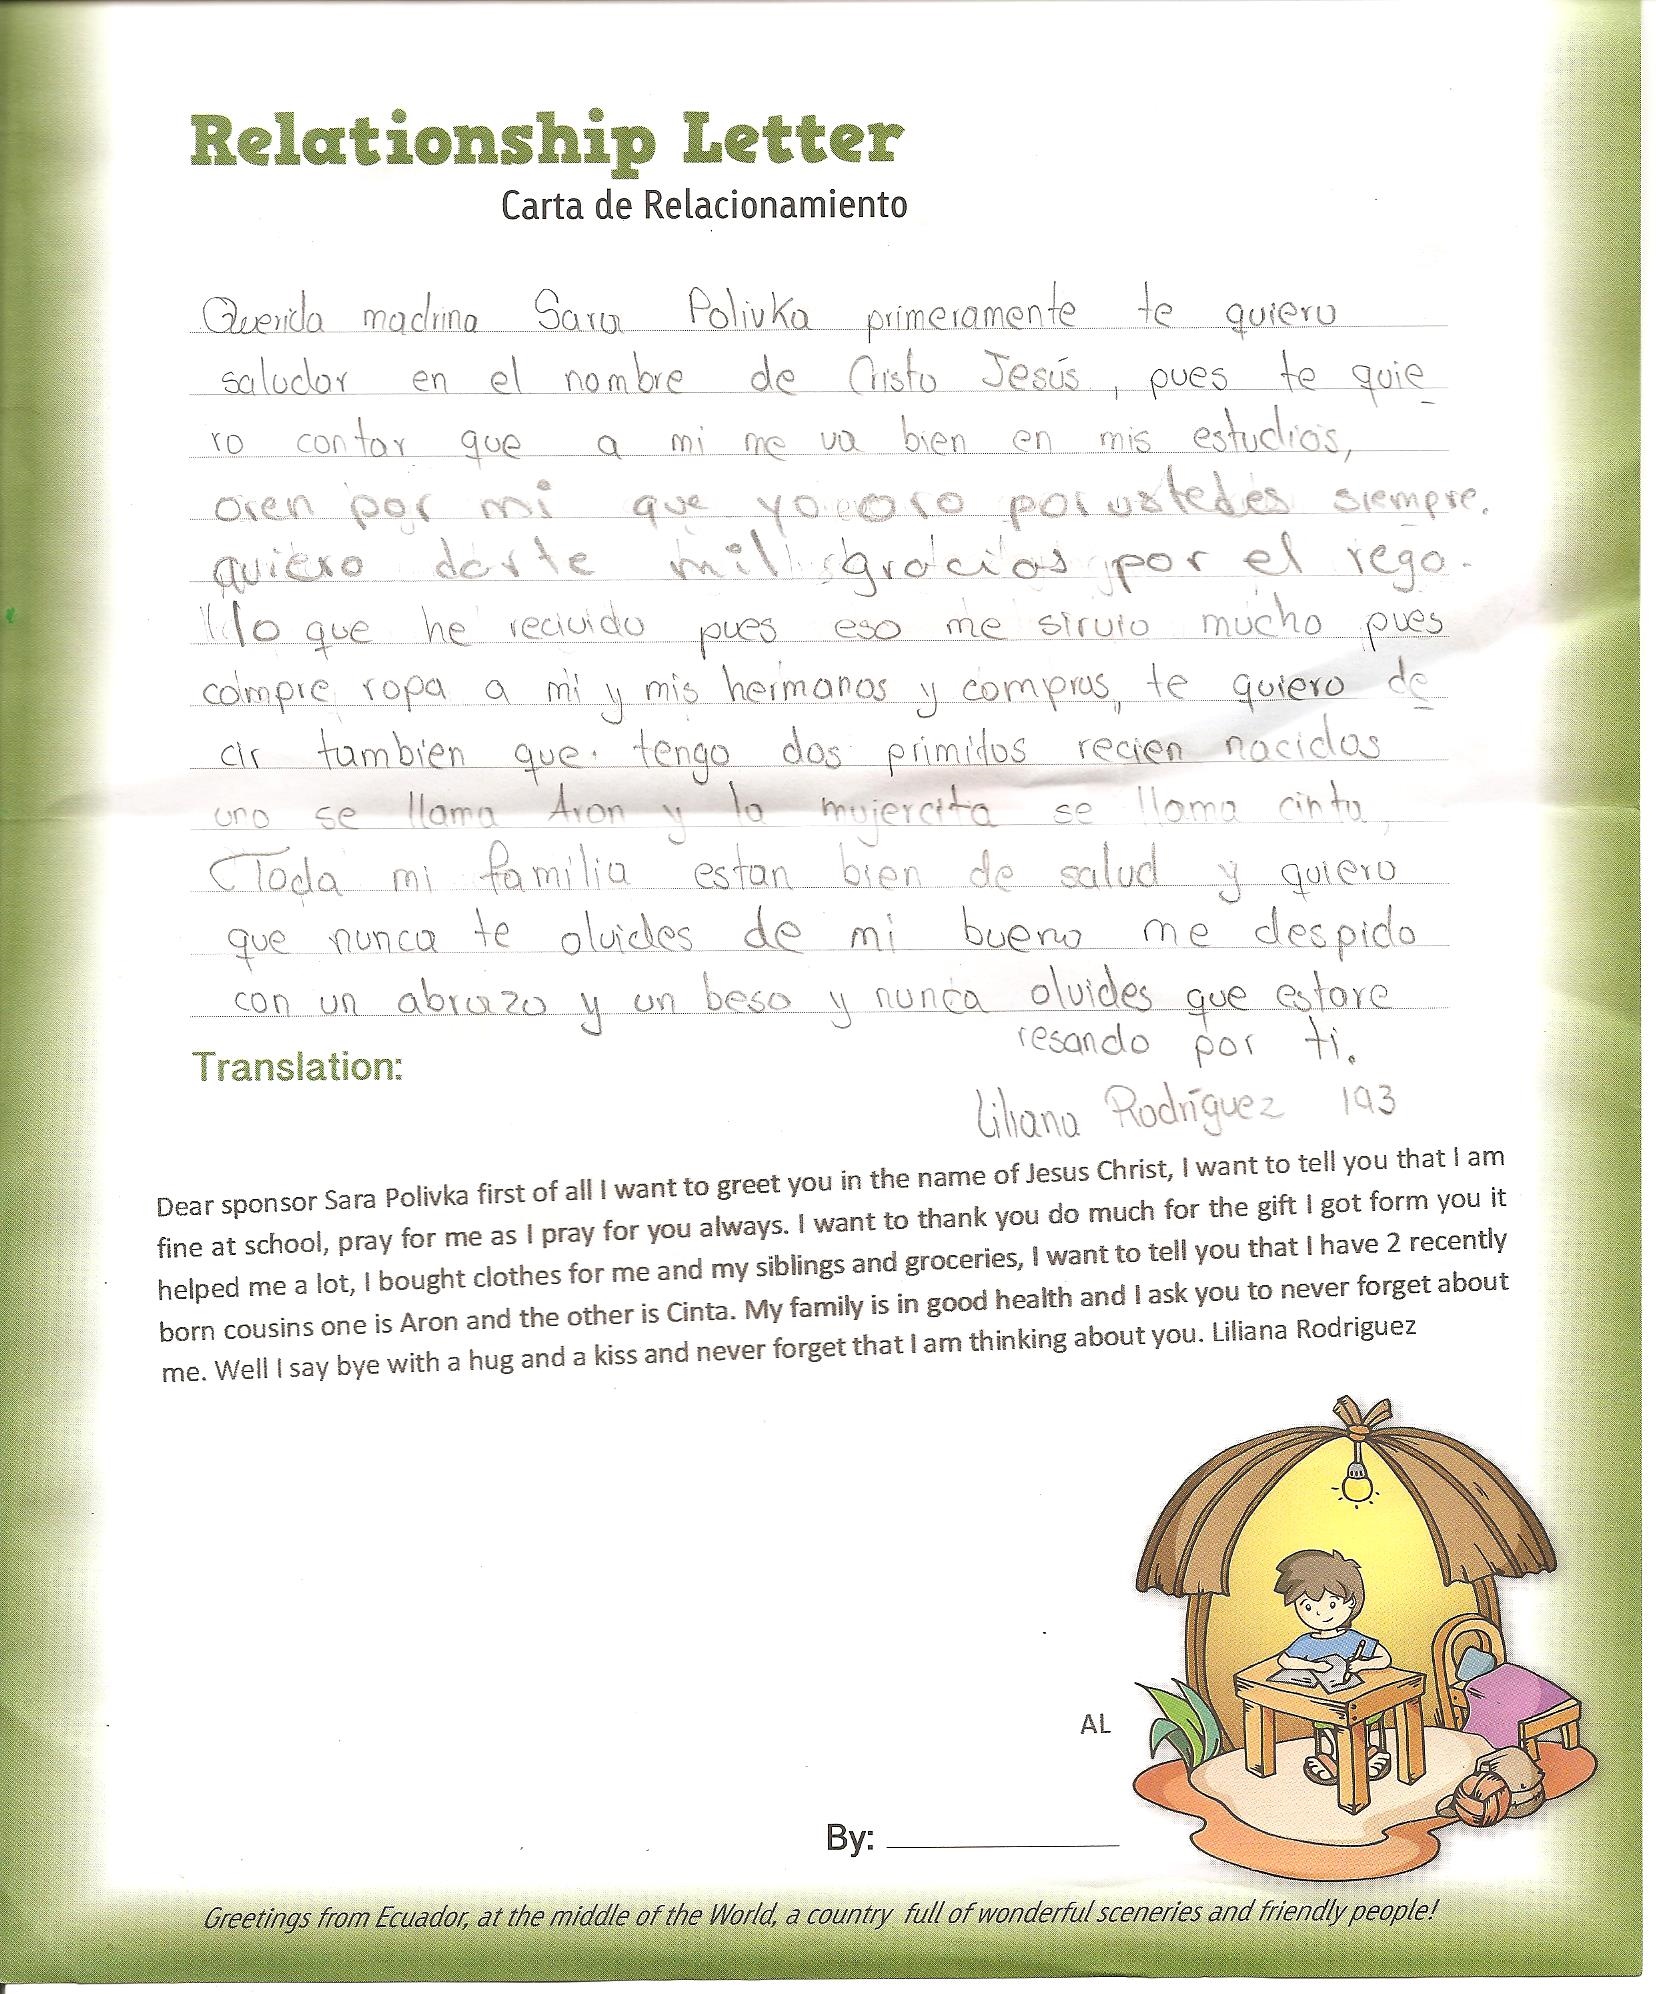 Relationship Letter
Carta de Relacionamiento
Querida madrina Sara Polivka primeramente te quiero
saludar en el nombre de Cristo Jesús, pues te quie
ro contar que a mi me va bien en mis estudios,
oren por mi que yo oro por ustedes siempre.
quiero darte mil gracias por el rega-
lo que he recivido pues eso me sirvio mucho pues
compre ropa a mi y mis hermanos y compras, te quiero de
cir tambien que tengo dos primitos recien nacidos
uno se llama Aron y la mujercita se llama cinta
Toda mi familia estan bien de salud y quiero
que nunca te olvides de mi bueno me despido
con un abrazo y un beso y nunca olvides que estare
resando por ti.
Translation:
Liliana Rodríguez 193
Dear sponsor Sara Polivka first of all I want to greet you in the name of Jesus Christ, I want to tell you that I am
fine at school, pray for me as I pray for you always. I want to thank you do much for the gift I got form you it
helped me a lot, I bought clothes for me and my siblings and groceries, I want to tell you that I have 2 recently
born cousins one is Aron and the other is Cinta. My family is in good health and I ask you to never forget about
me. Well I say bye with a hug and a kiss and never forget that I am thinking about you. Liliana Rodriguez
AL
By:
Greetings from Ecuador, at the middle of the World, a country full of wonderful sceneries and friendly people!